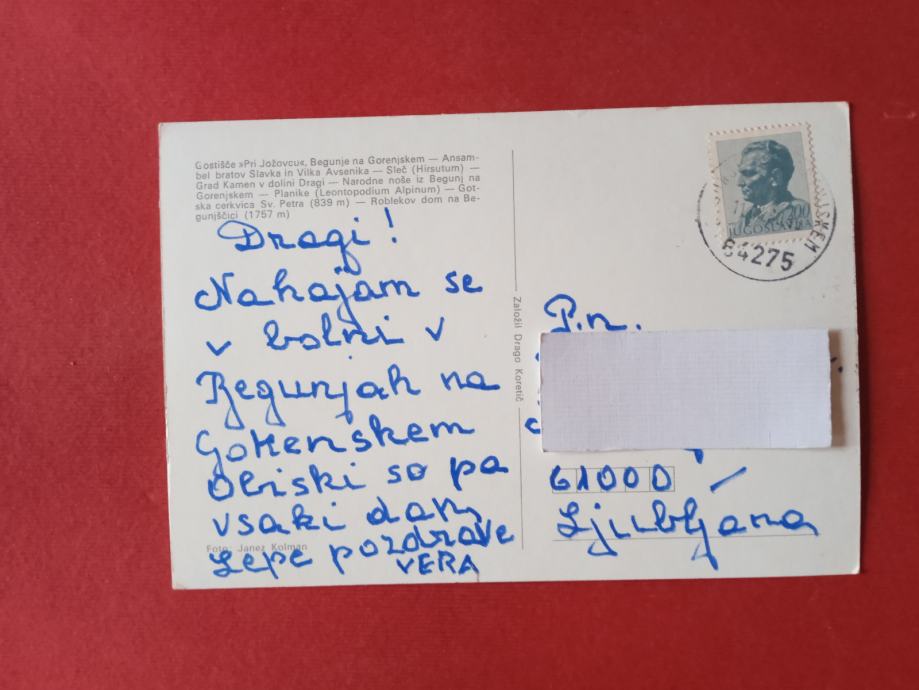 Gostišče »Pri Jožovcu«, Begunje na Gorenjskem — Ansam-
bel bratov Slavka in Vilka Avsenika — Sleč (Hirsutum) —
Grad Kamen v dolini Dragi — Narodne noše iz Begunj na
Gorenjskem — Planike (Leontopodium Alpinum) — Got-
ska cerkvica Sv. Petra (839 m) — Roblekov dom na Be-
gunjščici (1757 m)
Dragi!
Nahajam se
v bolni v
Begunjah na
Gorenskem
Obiski so pa
vsaki dan,
Lepe pozdrave
VERA
Foto: Janez Kolman
Založil Drago Koretič
200
JUGOSLAVIJA
64275
P.n.
61000
Ljubljana